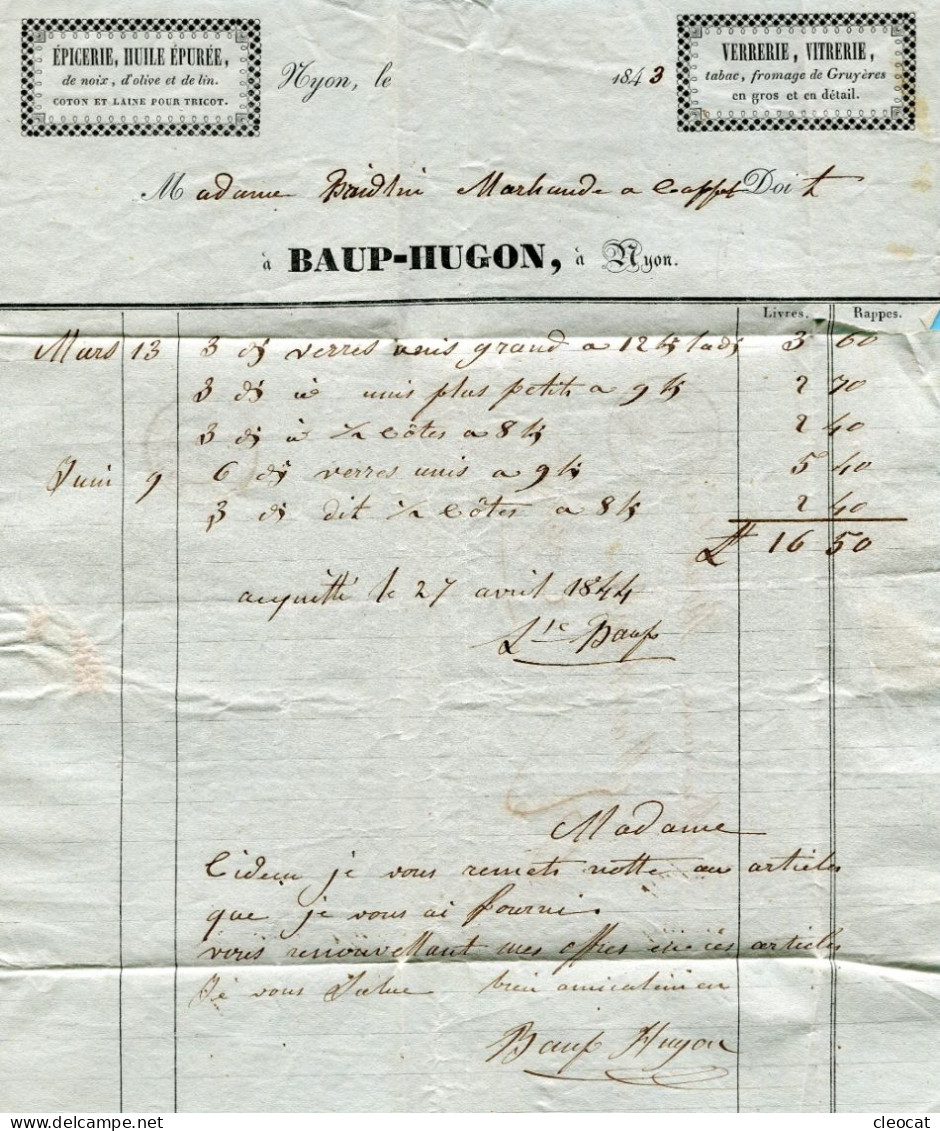 ÉPICERIE, HUILE ÉPURÉE,
de noix, d'olive et de lin.
COTON ET LAINE POUR TRICOT.
Nyon, le 1843
VERRERIE, VITRERIE,
tabac, fromage de Gruyères
en gros et en détail.
Madame Marhande a Doit
à BAUP-HUGON, à Nyon.
Livres. Rappes.
Mars 13 3 verres unis grand a 12 3 60
3 unis plus petits a 9 2 70
3 ½ Côtes a 8 2 40
Juin 9 6 verres unis a 9 5 40
3 dit ½ Côtes a 8 2 40
16 50
acquitté le 27 avril 1844
Baup
Madame
Cidesu je vous remets notte au articles
que je vous ai fourni
vous renouvellant mes offres ces articles
Je vous Salue bien
Baup Hugon
cleocat